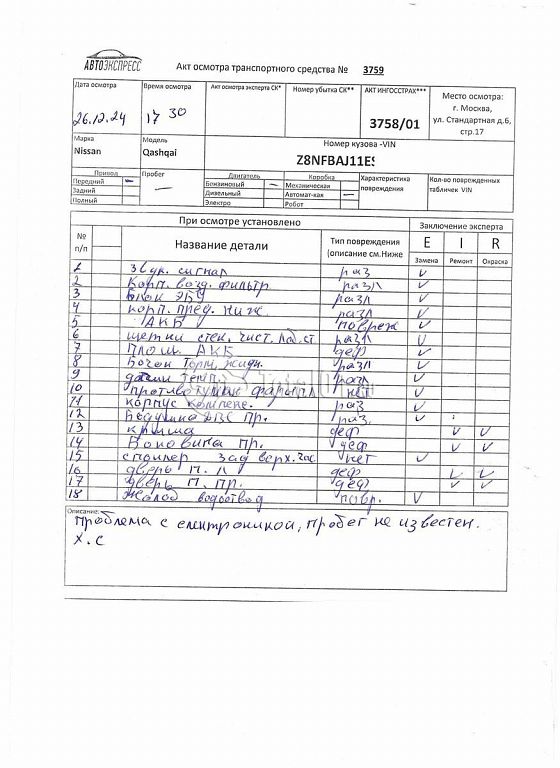 АВТОЭКСПРЕСС
Акт осмотра транспортного средства № 3759
Дата осмотра Время осмотра Акт осмотра эксперта СК* Номер убытка СК** АКТ ИНГОССТРАХ*** Место осмотра:
26.12.24 17 30 3758/01 г. Москва,
ул. Стандартная д.6,
стр.17
Марка Модель Номер кузова -VIN
Nissan Qashqai Z8NFBAJ11ES
Привод Пробег Двигатель Коробка Характеристика повреждения Кол-во поврежденных табличек VIN
Передний – — Бензиновый – Механическая
Задний Дизельный Автомат-кая –
Полный Электро Робот
При осмотре установлено Заключение эксперта
№ п/п Название детали Тип повреждения (описание см.Ниже E I R
Замена Ремонт Окраска
1 Звук. сигнал раз v
2 Корп. возд. фильтр. разл v
3 Блок ЭБУ разл v
4 корп. пред. ниж. разл v
5 АКБ повреж v
6 щетки стек. чист. разл v
7 Площ. АКБ деф v
8 Бочок Торм. жидк. разл v
9 темп. разл v
10 противотуман фара п л нет v
11 корпус раз v
12 ДВС пр. раз. v
13 крыша деф v v
14 Боковина пр. деф v v
15 спойлер зад верх. час нет v
16 дверь п. л деф v v
17 дверь п. пр. деф v v
18 водоотвод повр. v
Описание:
Проблема с електроникой, пробег не известен.
Х.с